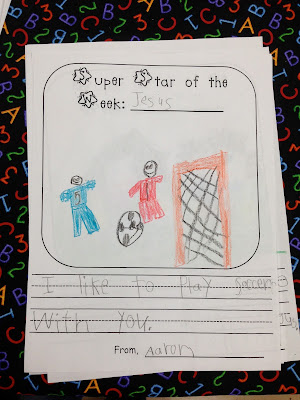 Super Star of the
Week: Jesus
I like to Play Soccer
With you.
From, Aaron